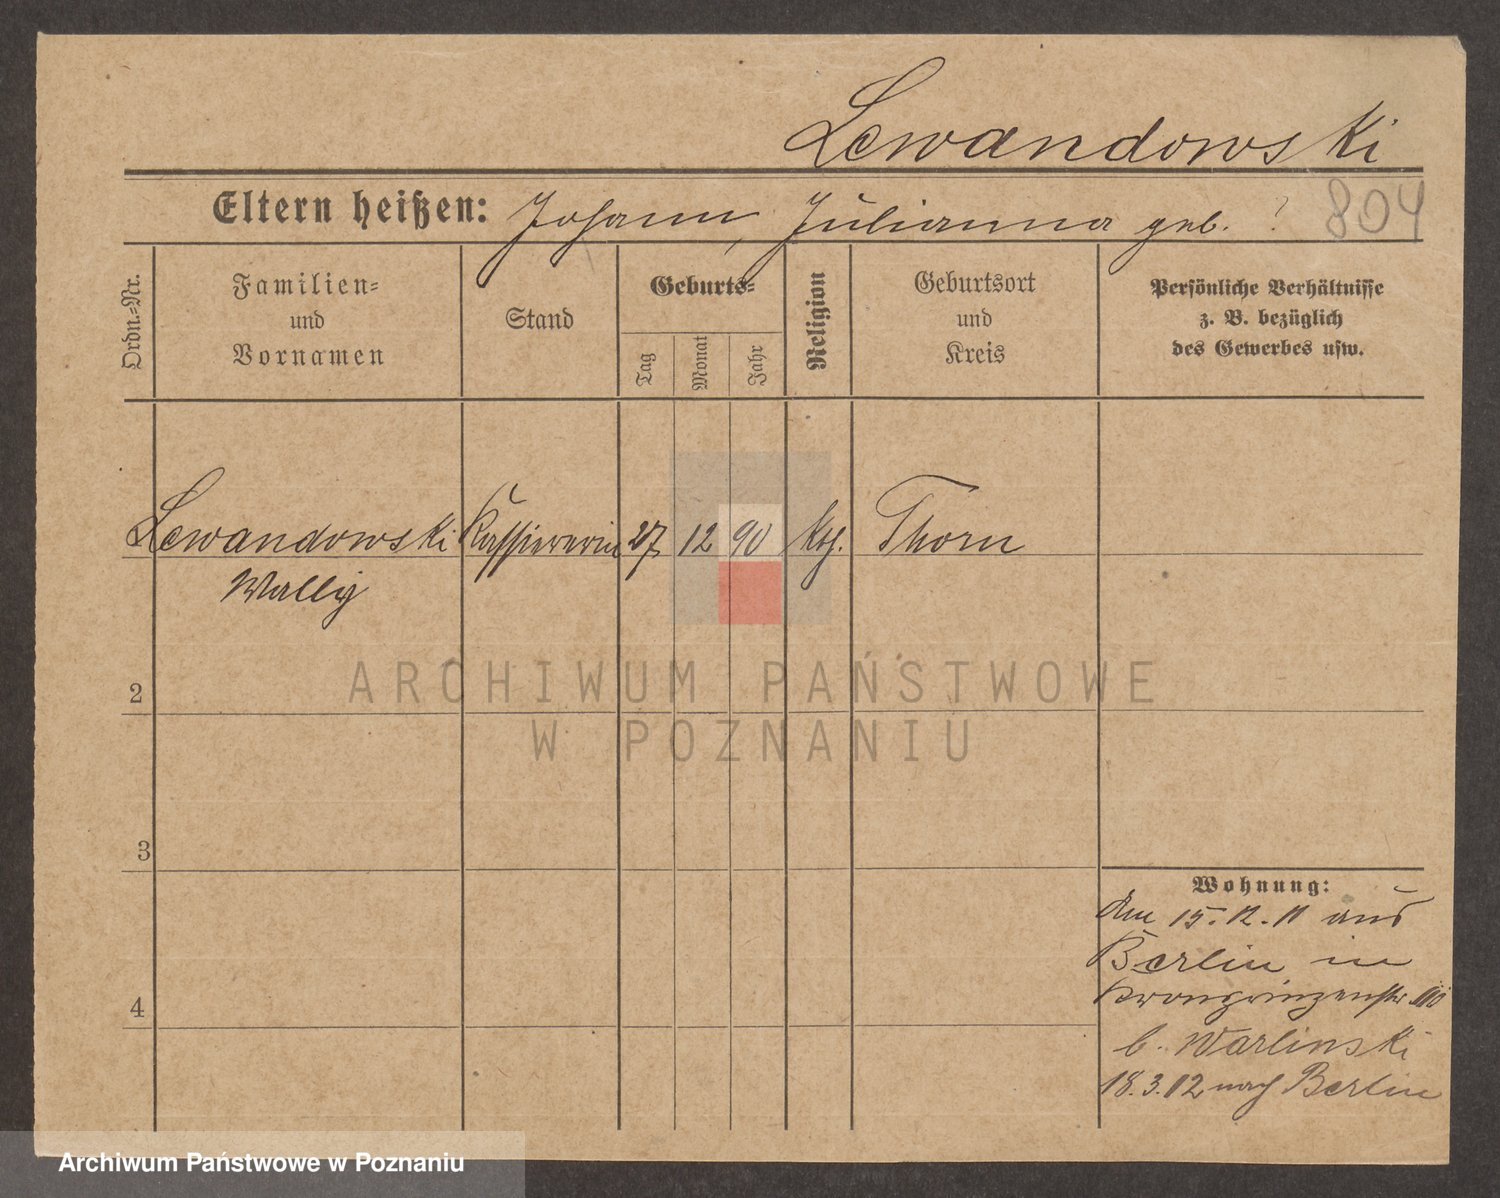 Lewandowski
Eltern heißen: Johann, Julianna geb. ?
804
Ordn.=Nr.
Familien=
und
Vornamen
Stand
Geburts=
Tag
Monat
Jahr
Religion
Geburtsort
und
Kreis
Persönliche Verhältnisse
z. B. bezüglich
des Gewerbes usw.
Lewandowski Kassiererin 27 12 90 kth. Thorn
Wally
2
3
4
Wohnung:
Am 15.12.11 aus
Berlin in
Kronprinzenstr
b. Warlinski
18.3.12 nach Berlin
ARCHIWUM PAŃSTWOWE
W POZNANIU
Archiwum Państwowe w Poznaniu